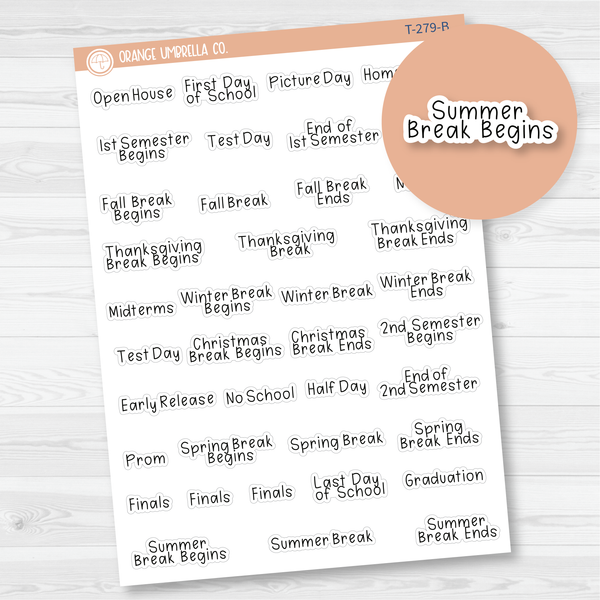 T-279-B
ORANGE UMBRELLA CO.
Open House
First Day
of School
Picture Day
Summer
Break Begins
1st Semester
Begins
Test Day
End of
1st Semester
Fall Break
Begins
Fall Break
Fall Break
Ends
Thanksgiving
Break Begins
Thanksgiving
Break
Thanksgiving
Break Ends
Midterms
Winter Break
Begins
Winter Break
Winter Break
Ends
Test Day
Christmas
Break Begins
Christmas
Break Ends
2nd Semester
Begins
Early Release
No School
Half Day
End of
2nd Semester
Prom
Spring Break
Begins
Spring Break
Spring
Break Ends
Finals
Finals
Finals
Last Day
of School
Graduation
Summer
Break Begins
Summer Break
Summer
Break Ends